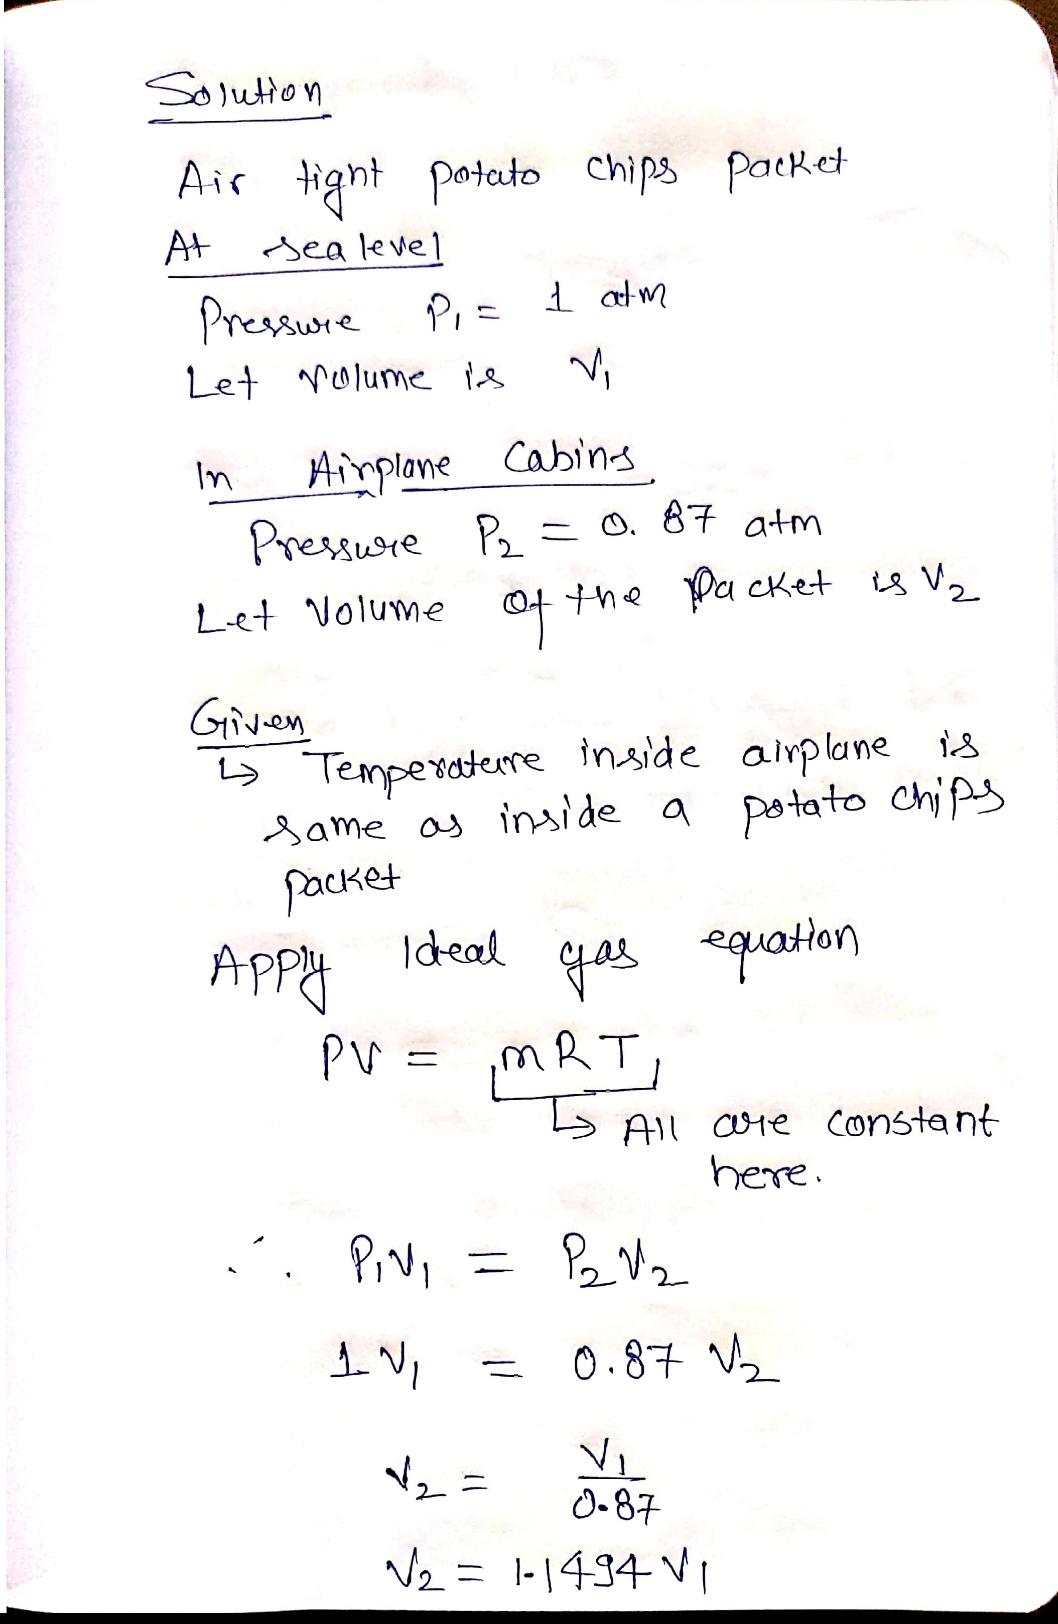 Solution
Air tight potato chips packet
At sea level
Pressure P₁ = 1 atm
Let volume is V₁
In Airplane Cabins
Pressure P₂ = 0.87 atm
Let Volume of the Packet is V₂
Given
↳ Temperature inside airplane is
same as inside a potato chips
packet
Apply Ideal gas equation
PV = mRT
↳ All are constant
here.
∴ P₁V₁ = P₂V₂
1 V₁ = 0.87 V₂
V₂ = V₁/0.87
V₂ = 1.1494 V₁